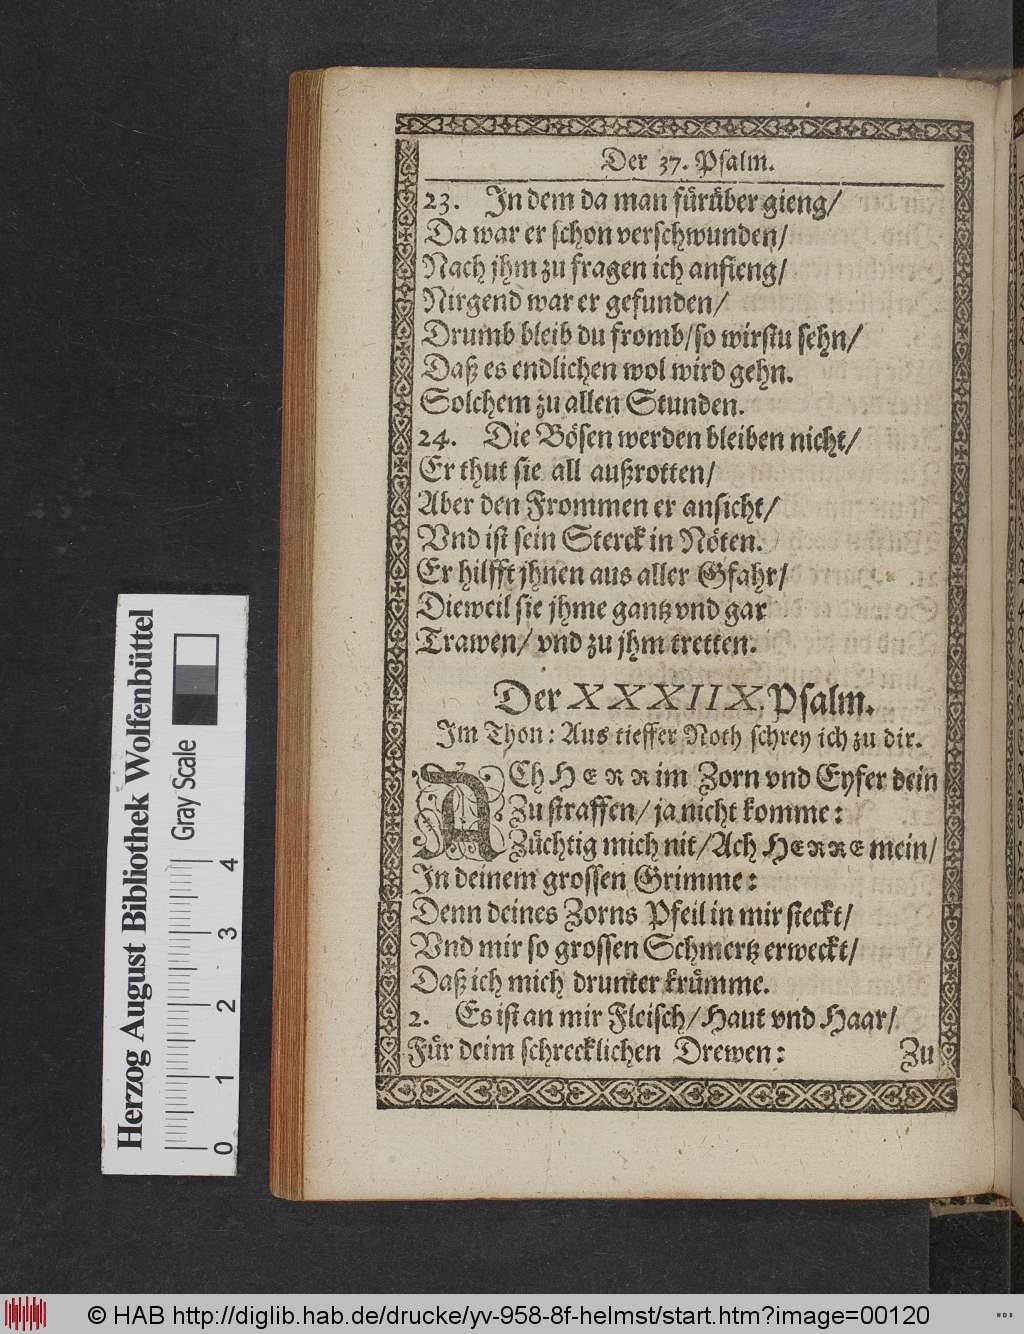 Der 37. Psalm.
23. In dem da man fürüber gieng/
Da war er schon verschwunden/
Nach jhm zu fragen ich anfieng/
Nirgend war er gefunden/
Drumb bleib du fromb/so wirstu sehn/
Daß es endlichen wol wird gehn.
Solchem zu allen Stunden.
24. Die Bösen werden bleiben nicht/
Er thut sie all außrotten/
Aber den Frommen er ansicht/
Vnd ist sein Sterck in Nöten.
Er hilfft jhnen aus aller Gfahr/
Dieweil sie jhme gantz vnd gar
Trawen/ vnd zu jhm tretten.
Der XXXIIX. Psalm.
Im Thon: Aus tieffer Noth schrey ich zu dir.
ACh HERR im Zorn vnd Eyfer dein
Zu straffen/ ja nicht komme:
Züchtig mich nit/Ach HERRE mein/
In deinem grossen Grimme:
Denn deines Zorns Pfeil in mir steckt/
Vnd mir so grossen Schmertz erweckt/
Daß ich mich drunter krümme.
2. Es ist an mir Fleisch/Haut vnd Haar/
Für deim schrecklichen Drewen:
Zu
Herzog August Bibliothek Wolfenbüttel
Gray Scale
0 1 2 3 4
© HAB http://diglib.hab.de/drucke/yv-958-8f-helmst/start.htm?image=00120